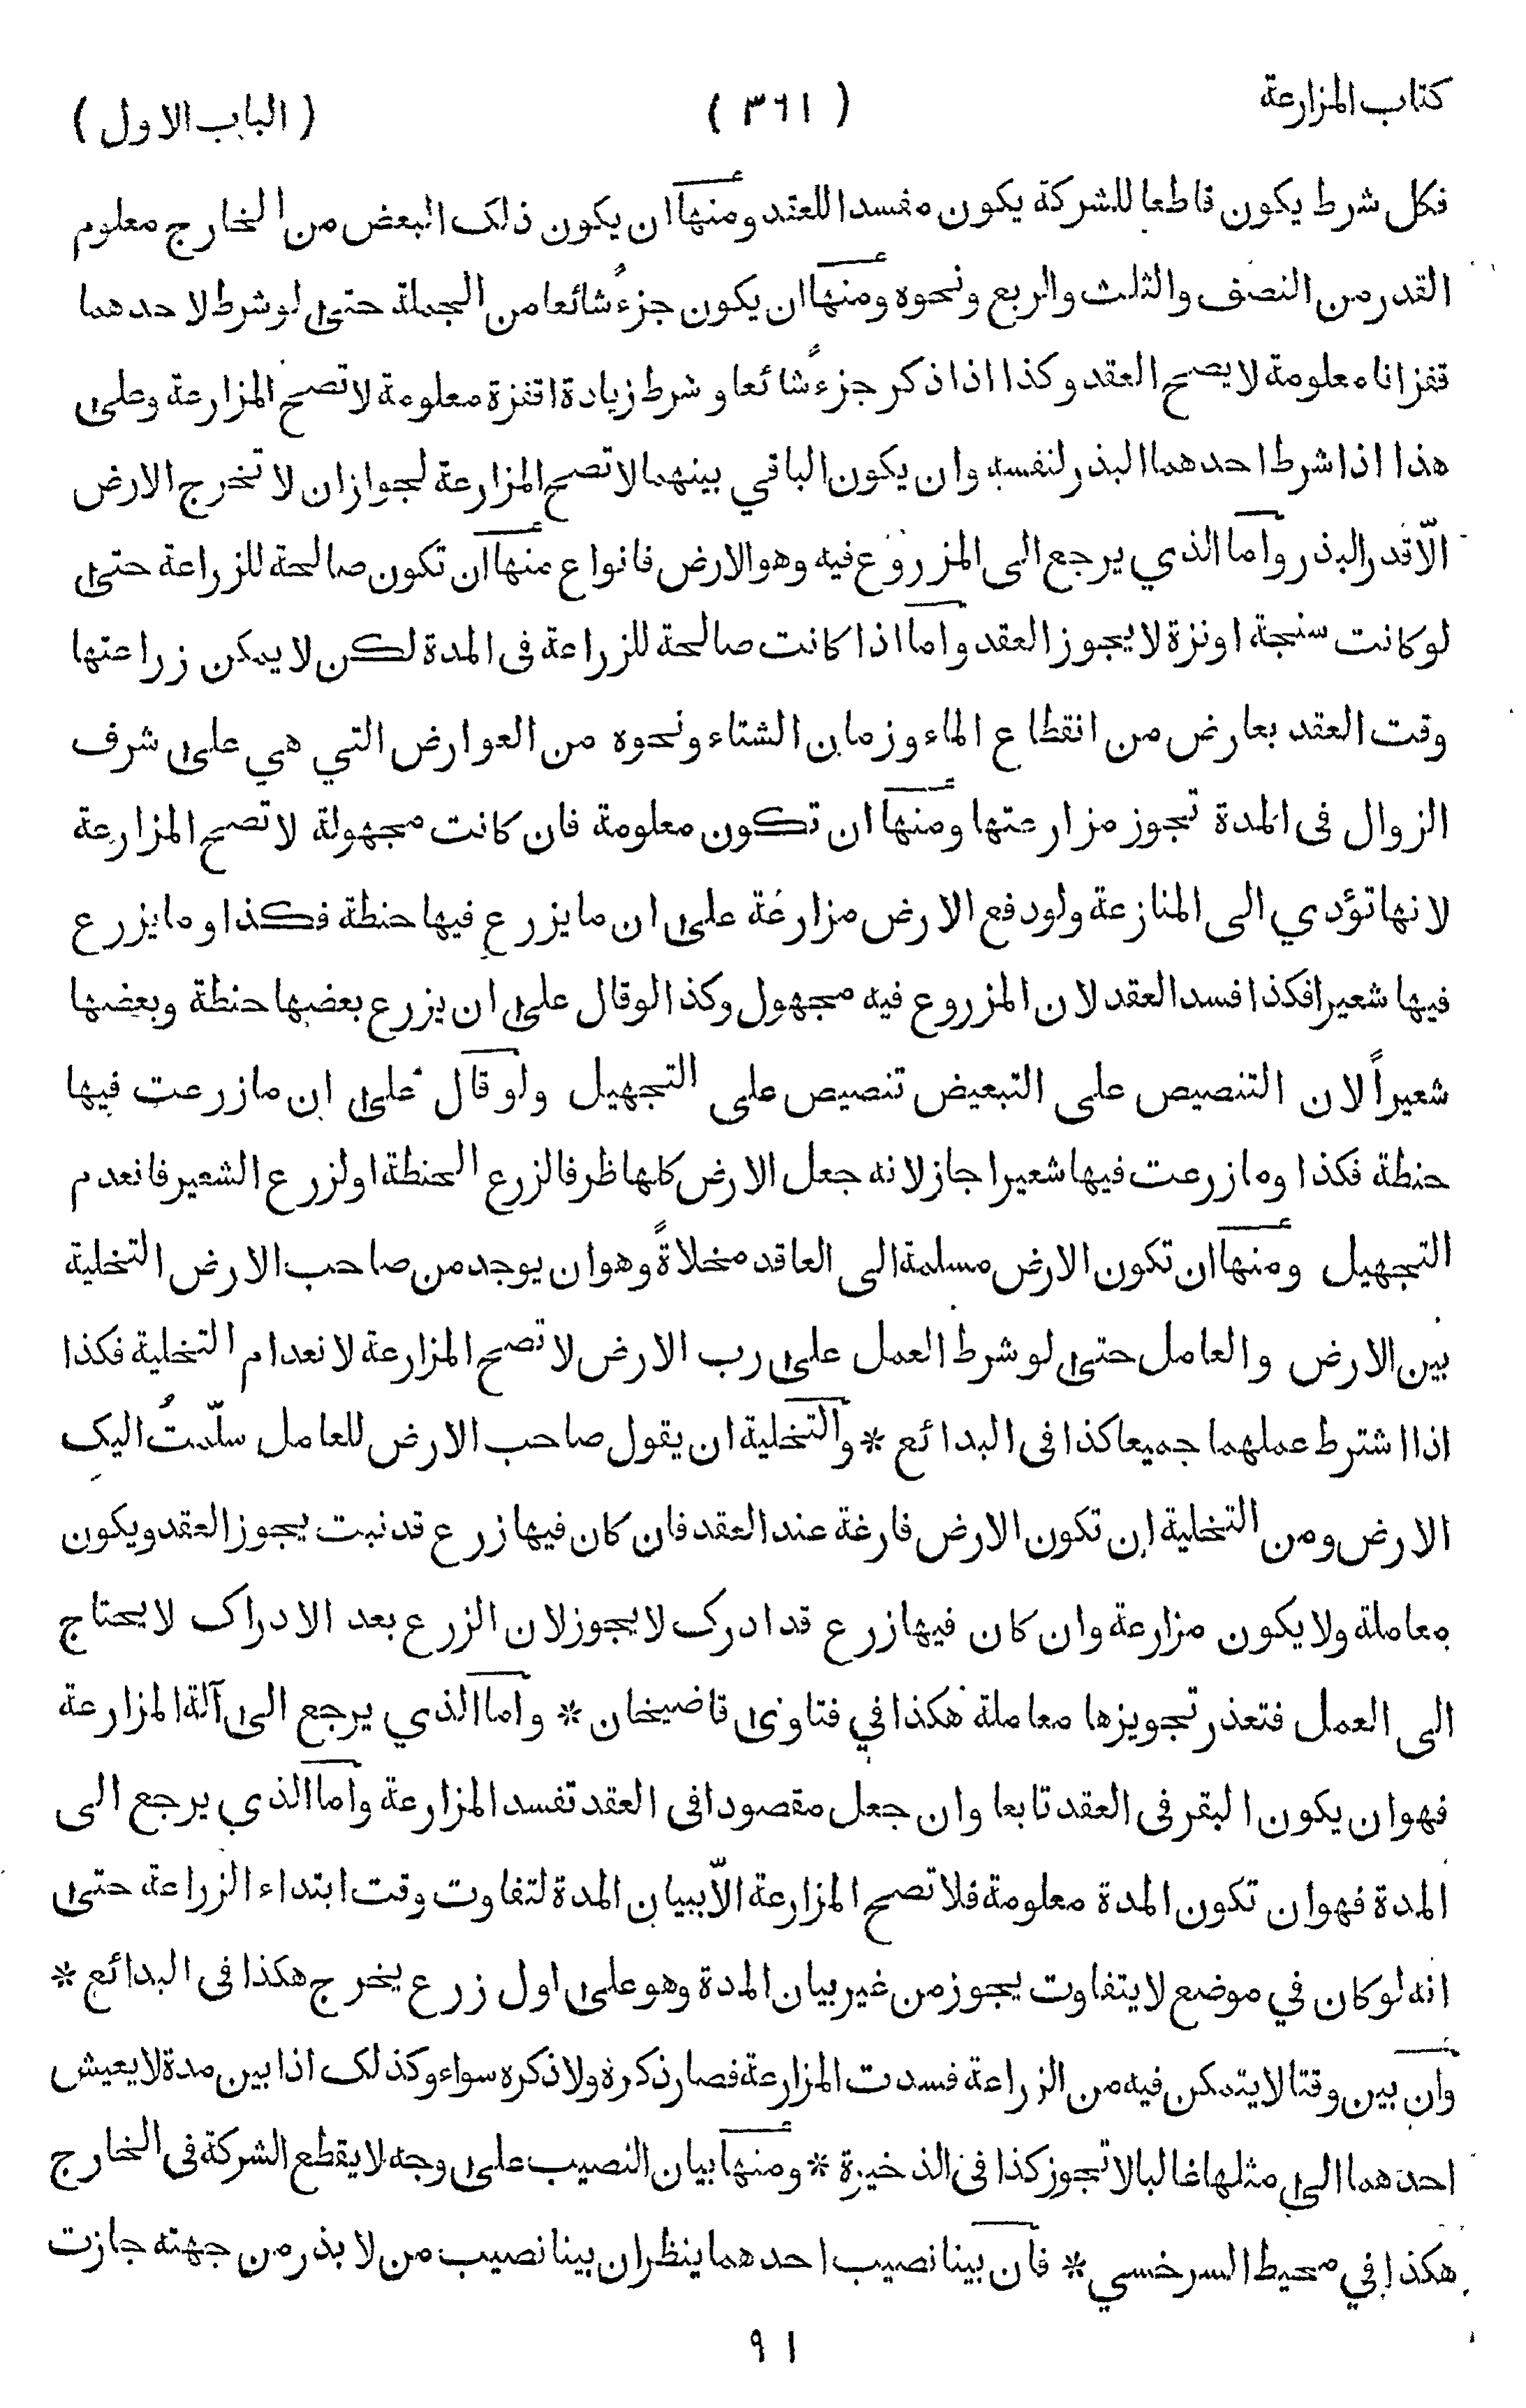 كتاب المزارعة
( ٣٦١ )
( الباب الاول )
فكل شرط يكون قاطعا للشركة يكون مفسدا للعقد ومنها ان يكون ذلك البعض من الخارج معلوم
القدر من النصف والثلث والربع ونحوه ومنها ان يكون جزءً شائعا من الجملة حتى لو شرط لاحدهما
قفزانا معلومة لا يصح العقد وكذا اذا ذكر جزءً شائعا وشرط زيادة اقفزة معلومة لا تصح المزارعة وعلى
هذا اذا شرط احدهما البذر لنفسه وان يكون الباقي بينهما لا تصح المزارعة لجواز ان لا تخرج الارض
الّا قدر البذر واما الذي يرجع الى المزروع فيه وهو الارض فانواع منها ان تكون صالحة للزراعة حتى
لو كانت سنجة او نزة لا يجوز العقد واما اذا كانت صالحة للزراعة فى المدة لكن لا يمكن زراعتها
وقت العقد بعارض من انقطاع الماء وزمان الشتاء ونحوه من العوارض التي هي على شرف
الزوال فى المدة تجوز مزارعتها ومنها ان تكون معلومة فان كانت مجهولة لا تصح المزارعة
لانها تؤدي الى المنازعة ولو دفع الارض مزارعة على ان ما يزرع فيها حنطة فكذا وما يزرع
فيها شعيرا فكذا فسد العقد لان المزروع فيه مجهول وكذا لو قال على ان يزرع بعضها حنطة وبعضها
شعيراً لان التنصيص على التبعيض تنصيص على التجهيل ولو قال على ان ما زرعت فيها
حنطة فكذا وما زرعت فيها شعيرا جاز لانه جعل الارض كلها ظرفا لزرع الحنطة او لزرع الشعير فانعدم
التجهيل ومنها ان تكون الارض مسلمة الى العاقد مخلاةً وهو ان يوجد من صاحب الارض التخلية
بين الارض والعامل حتى لو شرط العمل على رب الارض لا تصح المزارعة لانعدام التخلية فكذا
اذا اشترط عملهما جميعا كذا فى البدائع * والتخلية ان يقول صاحب الارض للعامل سلّمتُ اليك
الارض ومن التخلية ان تكون الارض فارغة عند العقد فان كان فيها زرع قد نبت يجوز العقد ويكون
معاملة ولا يكون مزارعة وان كان فيها زرع قد ادرك لا يجوز لان الزرع بعد الادراك لا يحتاج
الى العمل فتعذر تجويزها معاملة هكذا في فتاوى قاضيخان * واما الذي يرجع الى آلة المزارعة
فهو ان يكون البقر فى العقد تابعا وان جعل مقصودا فى العقد تفسد المزارعة واما الذي يرجع الى
المدة فهو ان تكون المدة معلومة فلا تصح المزارعة الّا ببيان المدة لتفاوت وقت ابتداء الزراعة حتى
انه لو كان في موضع لا يتفاوت يجوز من غير بيان المدة وهو على اول زرع يخرج هكذا فى البدائع *
وان بين وقتا لا يتمكن فيه من الزراعة فسدت المزارعة فصار ذكره ولا ذكره سواء وكذلك اذا بين مدة لا يعيش
احدهما الى مثلها غالبا لا تجوز كذا فى الذخيرة * ومنها بيان النصيب على وجه لا يقطع الشركة فى الخارج
هكذا في محيط السرخسي * فان بينا نصيب احدهما ينظر ان بينا نصيب من لا بذر من جهته جازت
٩١